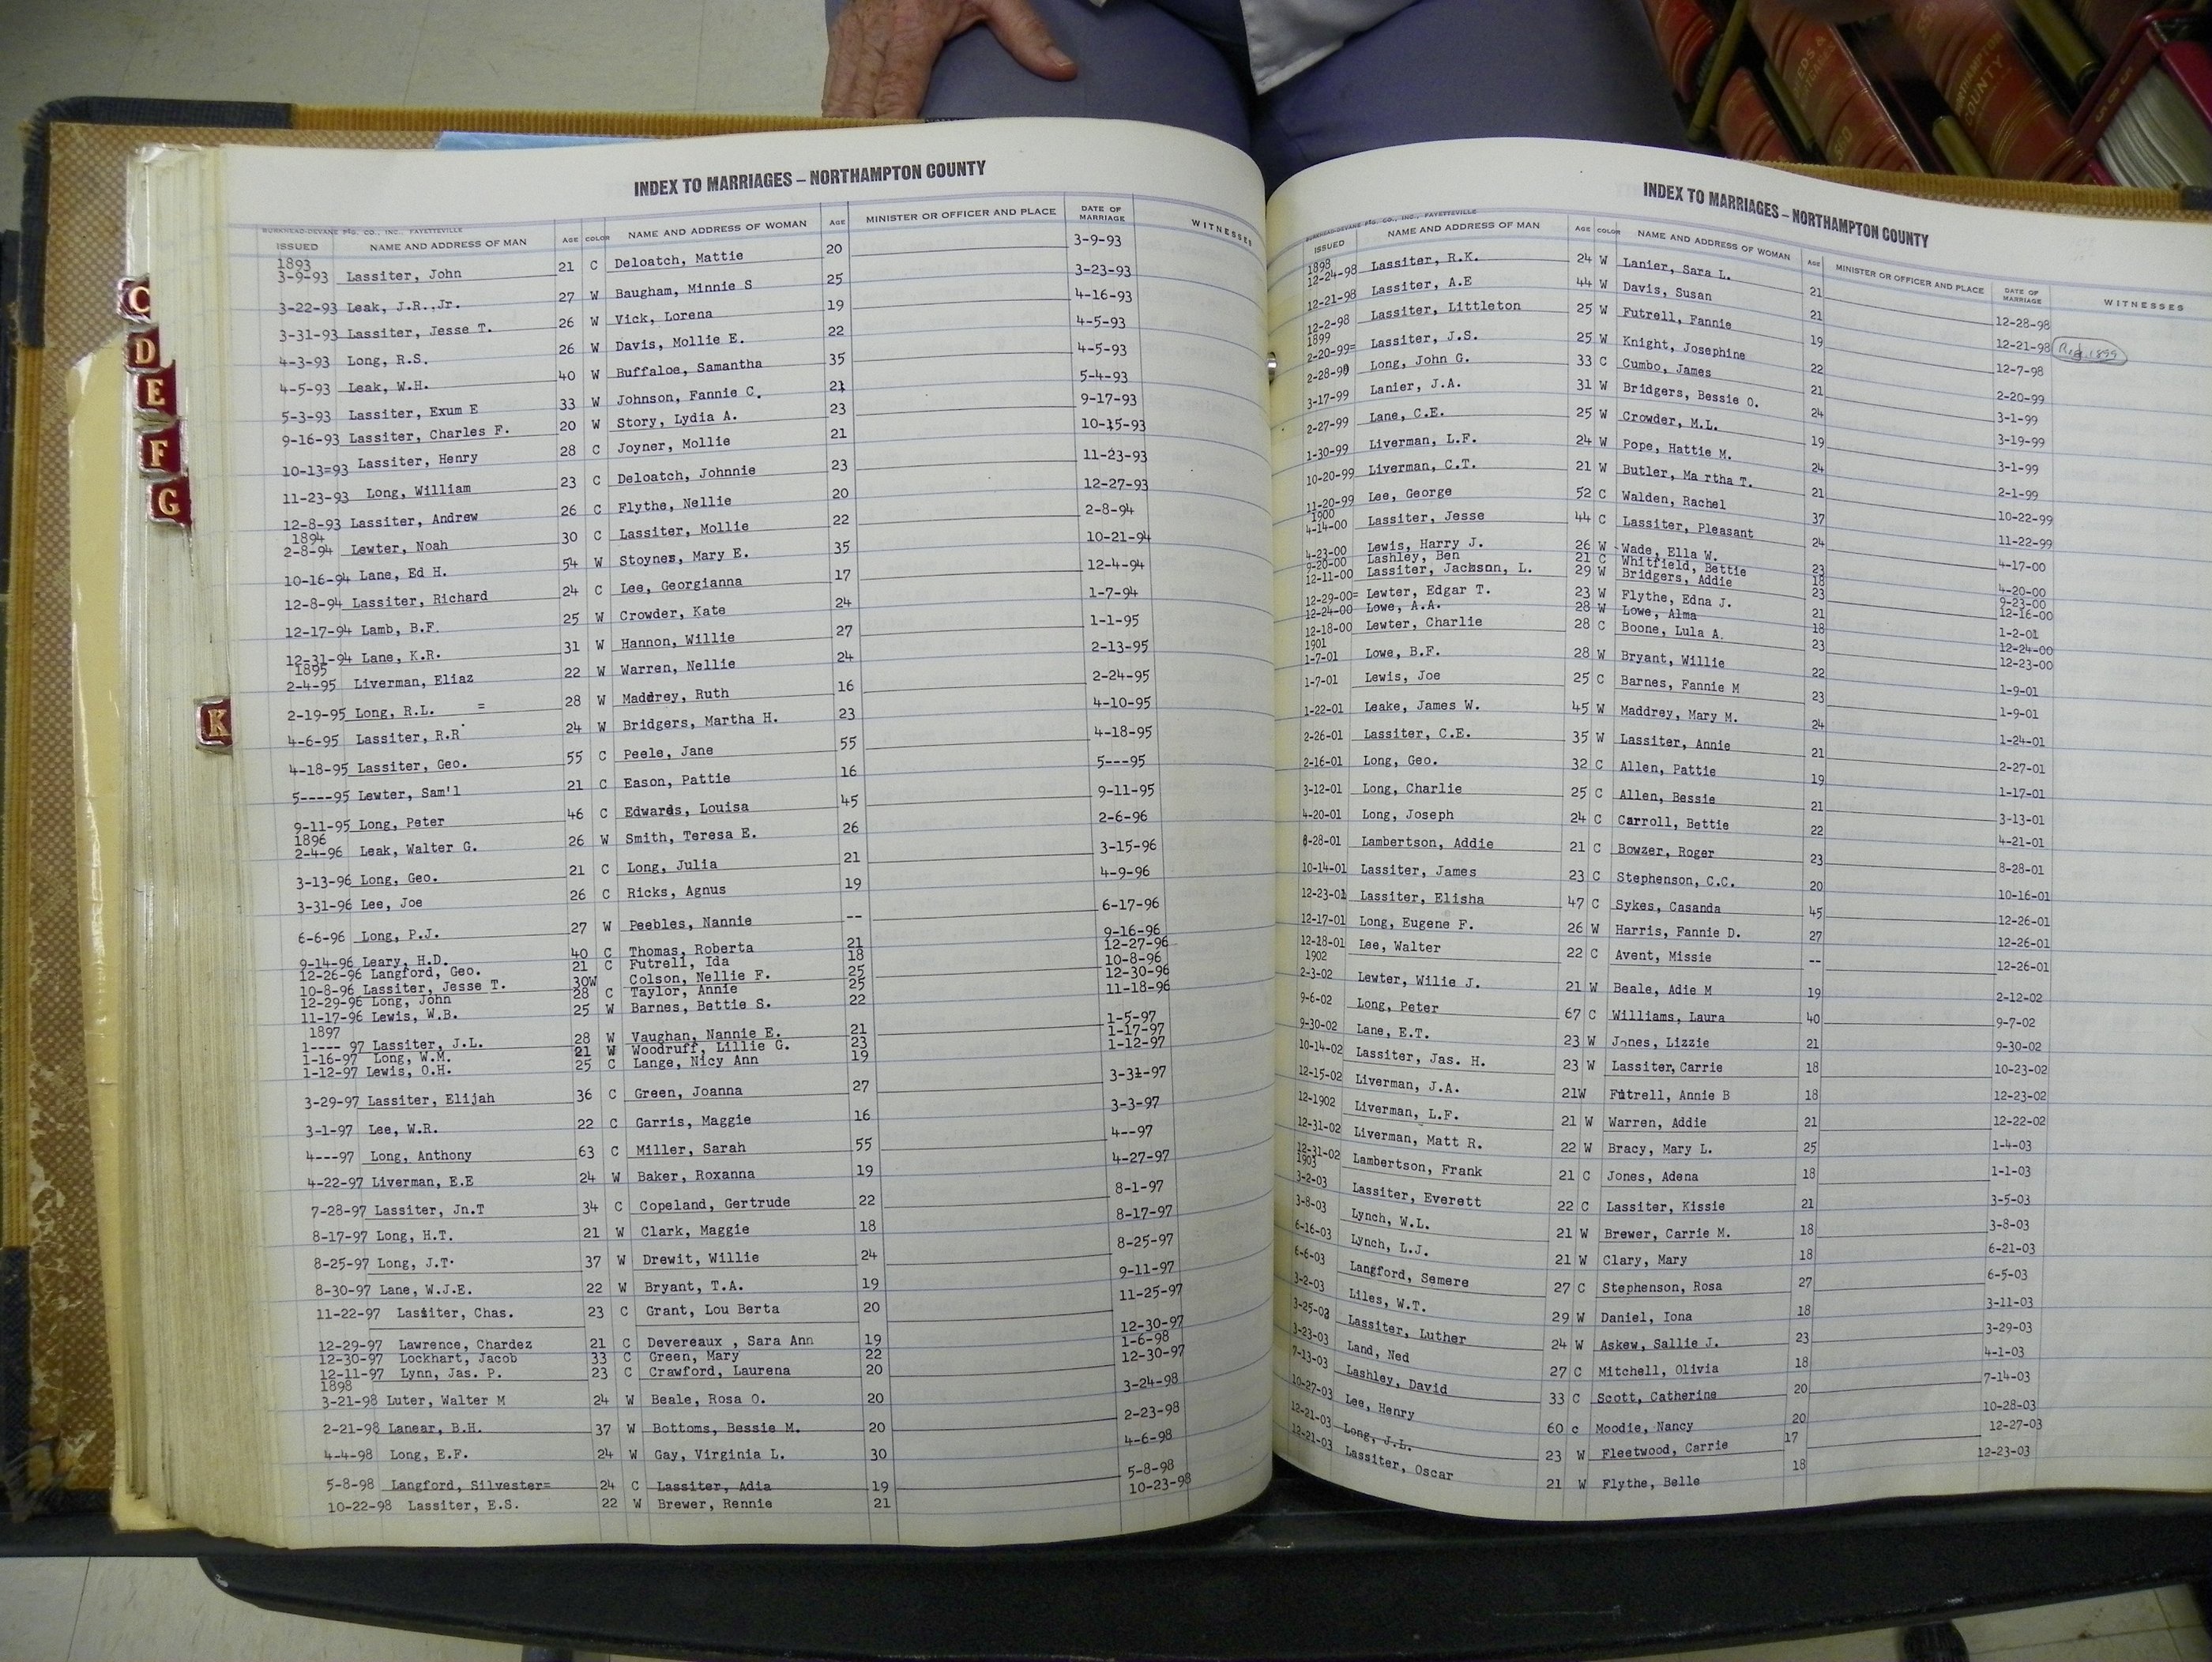 INDEX TO MARRIAGES – NORTHAMPTON COUNTY
BURKHEAD-DEVANE P'G. CO., INC., FAYETTEVILLE
ISSUED NAME AND ADDRESS OF MAN AGE COLOR NAME AND ADDRESS OF WOMAN AGE MINISTER OR OFFICER AND PLACE DATE OF MARRIAGE WITNESSES
1893
3-9-93 Lassiter, John 21 C Deloatch, Mattie 20 3-9-93
3-22-93 Leak, J.R.,Jr. 27 W Baugham, Minnie S 25 3-23-93
3-31-93 Lassiter, Jesse T. 26 W Vick, Lorena 19 4-16-93
4-3-93 Long, R.S. 26 W Davis, Mollie E. 22 4-5-93
4-5-93 Leak, W.H. 40 W Buffaloe, Samantha 35 4-5-93
5-3-93 Lassiter, Exum E 33 W Johnson, Fannie C. 21 5-4-93
9-16-93 Lassiter, Charles F. 20 W Story, Lydia A. 23 9-17-93
10-13=93 Lassiter, Henry 28 C Joyner, Mollie 21 10-15-93
11-23-93 Long, William 23 C Deloatch, Johnnie 23 11-23-93
12-8-93 Lassiter, Andrew 26 C Flythe, Nellie 20 12-27-93
1894
2-8-94 Lewter, Noah 30 C Lassiter, Mollie 22 2-8-94
10-16-94 Lane, Ed H. 54 W Stoynes, Mary E. 35 10-21-94
12-8-94 Lassiter, Richard 24 C Lee, Georgianna 17 12-4-94
12-17-94 Lamb, B.F. 25 W Crowder, Kate 24 1-7-94
12-31-94 Lane, K.R. 31 W Hannon, Willie 27 1-1-95
1895
2-4-95 Liverman, Eliaz 22 W Warren, Nellie 24 2-13-95
2-19-95 Long, R.L. = 28 W Maddrey, Ruth 16 2-24-95
4-6-95 Lassiter, R.R 24 W Bridgers, Martha H. 23 4-10-95
4-18-95 Lassiter, Geo. 55 C Peele, Jane 55 4-18-95
5----95 Lewter, Sam'l 21 C Eason, Pattie 16 5---95
9-11-95 Long, Peter 46 C Edwards, Louisa 45 9-11-95
1896
2-4-96 Leak, Walter G. 26 W Smith, Teresa E. 26 2-6-96
3-13-96 Long, Geo. 21 C Long, Julia 21 3-15-96
3-31-96 Lee, Joe 26 C Ricks, Agnus 19 4-9-96
6-6-96 Long, P.J. 27 W Peebles, Nannie -- 6-17-96
9-14-96 Leary, H.D. 40 C Thomas, Roberta 21 9-16-96
12-26-96 Langford, Geo. 21 C Futrell, Ida 18 12-27-96
10-8-96 Lassiter, Jesse T. 30W Colson, Nellie F. 25 10-8-96
12-29-96 Long, John 28 C Taylor, Annie 25 12-30-96
11-17-96 Lewis, W.B. 25 W Barnes, Bettie S. 22 11-18-96
1897
1---- 97 Lassiter, J.L. 28 W Vaughan, Nannie E. 21 1-5-97
1-16-97 Long, W.M. 21 W Woodruff, Lillie G. 23 1-17-97
1-12-97 Lewis, O.H. 25 C Lange, Nicy Ann 19 1-12-97
3-29-97 Lassiter, Elijah 36 C Green, Joanna 27 3-31-97
3-1-97 Lee, W.R. 22 C Garris, Maggie 16 3-3-97
4---97 Long, Anthony 63 C Miller, Sarah 55 4--97
4-22-97 Liverman, E.E 24 W Baker, Roxanna 19 4-27-97
7-28-97 Lassiter, Jn.T 34 C Copeland, Gertrude 22 8-1-97
8-17-97 Long, H.T. 21 W Clark, Maggie 18 8-17-97
8-25-97 Long, J.T. 37 W Drewit, Willie 24 8-25-97
8-30-97 Lane, W.J.E. 22 W Bryant, T.A. 19 9-11-97
11-22-97 Lassiter, Chas. 23 C Grant, Lou Berta 20 11-25-97
12-29-97 Lawrence, Chardez 21 C Devereaux , Sara Ann 19 12-30-97
12-30-97 Lockhart, Jacob 33 C Green, Mary 22 1-6-98
12-11-97 Lynn, Jas. P. 23 C Crawford, Laurena 20 12-30-97
1898
3-21-98 Luter, Walter M 24 W Beale, Rosa O. 20 3-24-98
2-21-98 Lanear, B.H. 37 W Bottoms, Bessie M. 20 2-23-98
4-4-98 Long, E.F. 24 W Gay, Virginia L. 30 4-6-98
5-8-98 Langford, Silvester= 24 C Lassiter, Adia 19 5-8-98
10-22-98 Lassiter, E.S. 22 W Brewer, Rennie 21 10-23-98
C
D
E
F
G
K
INDEX TO MARRIAGES – NORTHAMPTON COUNTY
BURKHEAD-DEVANE P'G. CO., INC., FAYETTEVILLE
ISSUED NAME AND ADDRESS OF MAN AGE COLOR NAME AND ADDRESS OF WOMAN AGE MINISTER OR OFFICER AND PLACE DATE OF MARRIAGE WITNESSES
1898
12-24-98 Lassiter, R.K. 24 W Lanier, Sara L. 21 12-28-98
12-21-98 Lassiter, A.E 44 W Davis, Susan 21 12-21-98 1899
12-2-98 Lassiter, Littleton 25 W Futrell, Fannie 19 12-7-98
1899
2-20-99= Lassiter, J.S. 25 W Knight, Josephine 22 2-20-99
2-28-99 Long, John G. 33 C Cumbo, James 21 3-1-99
3-17-99 Lanier, J.A. 31 W Bridgers, Bessie O. 24 3-19-99
2-27-99 Lane, C.E. 25 W Crowder, M.L. 19 3-1-99
1-30-99 Liverman, L.F. 24 W Pope, Hattie M. 24 2-1-99
10-20-99 Liverman, C.T. 21 W Butler, Ma rtha T. 21 10-22-99
11-20-99 Lee, George 52 C Walden, Rachel 37 11-22-99
1900
4-14-00 Lassiter, Jesse 44 C Lassiter, Pleasant 24 4-17-00
4-23-00 Lewis, Harry J. 26 W Wade, Ella W. 23 4-20-00
9-20-00 Lashley, Ben 21 C Whitfield, Bettie 18 9-23-00
12-11-00 Lassiter, Jackson, L. 29 W Bridgers, Addie 23 12-16-00
12-29-00= Lewter, Edgar T. 23 W Flythe, Edna J. 21 1-2-01
12-24-00 Lowe, A.A. 28 W Lowe, Alma 18 12-24-00
12-18-00 Lewter, Charlie 28 C Boone, Lula A. 23 12-23-00
1901
1-7-01 Lowe, B.F. 28 W Bryant, Willie 22 1-9-01
1-7-01 Lewis, Joe 25 C Barnes, Fannie M 23 1-9-01
1-22-01 Leake, James W. 45 W Maddrey, Mary M. 24 1-24-01
2-26-01 Lassiter, C.E. 35 W Lassiter, Annie 21 2-27-01
2-16-01 Long, Geo. 32 C Allen, Pattie 19 1-17-01
3-12-01 Long, Charlie 25 C Allen, Bessie 21 3-13-01
4-20-01 Long, Joseph 24 C Carroll, Bettie 22 4-21-01
8-28-01 Lambertson, Addie 21 C Bowzer, Roger 23 8-28-01
10-14-01 Lassiter, James 23 C Stephenson, C.C. 20 10-16-01
12-23-01 Lassiter, Elisha 47 C Sykes, Casanda 45 12-26-01
12-17-01 Long, Eugene F. 26 W Harris, Fannie D. 27 12-26-01
12-28-01 Lee, Walter 22 C Avent, Missie -- 12-26-01
1902
2-3-02 Lewter, Wilie J. 21 W Beale, Adie M 19 2-12-02
9-6-02 Long, Peter 67 C Williams, Laura 40 9-7-02
9-30-02 Lane, E.T. 23 W Jones, Lizzie 21 9-30-02
10-14-02 Lassiter, Jas. H. 23 W Lassiter, Carrie 18 10-23-02
12-15-02 Liverman, J.A. 21W Futrell, Annie B 18 12-23-02
12-1902 Liverman, L.F. 21 W Warren, Addie 21 12-22-02
12-31-02 Liverman, Matt R. 22 W Bracy, Mary L. 25 1-4-03
12-31-02 Lambertson, Frank 21 C Jones, Adena 18 1-1-03
1903
3-2-03 Lassiter, Everett 22 C Lassiter, Kissie 21 3-5-03
3-8-03 Lynch, W.L. 21 W Brewer, Carrie M. 18 3-8-03
6-16-03 Lynch, L.J. 21 W Clary, Mary 18 6-21-03
6-6-03 Langford, Semere 27 C Stephenson, Rosa 27 6-5-03
3-2-03 Liles, W.T. 29 W Daniel, Iona 18 3-11-03
3-25-03 Lassiter, Luther 24 W Askew, Sallie J. 23 3-29-03
3-23-03 Land, Ned 27 C Mitchell, Olivia 18 4-1-03
7-13-03 Lashley, David 33 C Scott, Catherine 20 7-14-03
10-27-03 Lee, Henry 60 c Moodie, Nancy 20 10-28-03
12-21-03 Long, J.L. 23 W Fleetwood, Carrie 17 12-27-03
12-21-03 Lassiter, Oscar 21 W Flythe, Belle 18 12-23-03
COUNTY